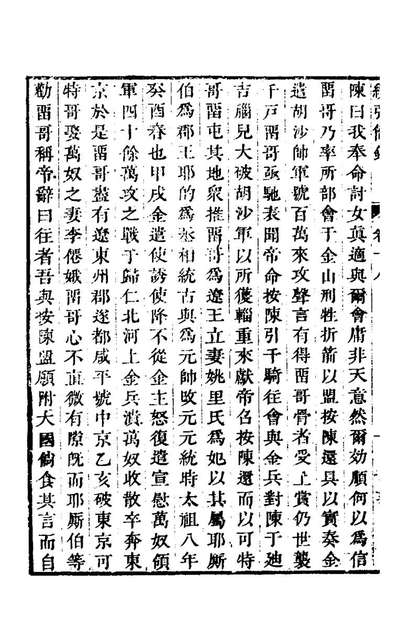 卷十八
陳曰我奉命討女真適與爾會庸非天意然爾効順何以為信
畱哥乃率所部會于金山刑牲折箭以盟按陳還具以實奏金
遣胡沙帥軍號百萬來攻聲言有得畱哥骨者受上賞仍世襲
千戸畱哥亟馳表聞帝命按陳引千騎往會與金兵對陳于廸
吉腦兒大破胡沙軍以所獲輜重來獻帝名按陳還而以可特
哥畱屯其地衆推畱哥為遼王立妻姚里氏為妃以其屬耶厮
伯為郡王耶的為丞相統古與為元帥改元元統時太祖八年
癸酉春也甲戌金遣使誘使降不從金主怒復遣宣慰萬奴領
軍四十餘萬攻之戰于歸仁北河上金兵潰萬奴收散卒奔東
京於是畱哥盡有遼東州郡遂都咸平號中京乙亥破東京可
特哥娶萬奴之妻李僊娥畱哥心不直微有隙旣而耶厮伯等
勸畱哥稱帝辭曰往者吾與按陳盟願附大國食其言而自